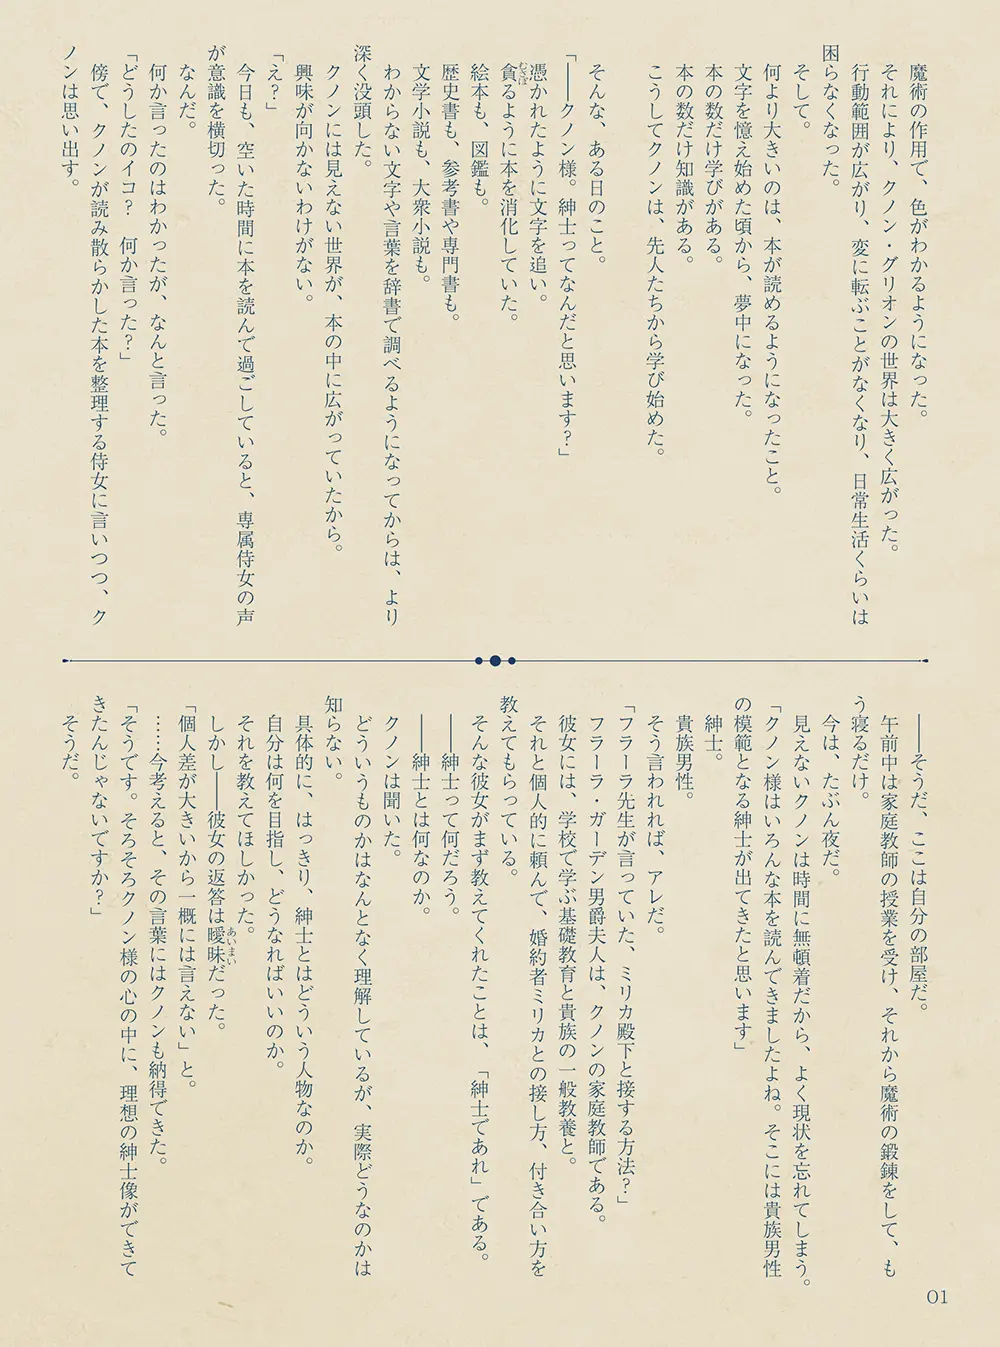 魔術の作用で、色がわかるようになった。
それにより、クノン・グリオンの世界は大きく広がった。
行動範囲が広がり、変に転ぶことがなくなり、日常生活くらいは
困らなくなった。
そして。
何より大きいのは、本が読めるようになったこと。
文字を憶え始めた頃から、夢中になった。
本の数だけ学びがある。
本の数だけ知識がある。
こうしてクノンは、先人たちから学び始めた。
そんな、ある日のこと。
「――クノン様。紳士ってなんだと思います？」
憑かれたように文字を追い。
貪るように本を消化していた。
むさぼ
絵本も、図鑑も。
歴史書も、参考書や専門書も。
文学小説も、大衆小説も。
わからない文字や言葉を辞書で調べるようになってからは、より
深く没頭した。
クノンには見えない世界が、本の中に広がっていたから。
興味が向かないわけがない。
「え？」
今日も、空いた時間に本を読んで過ごしていると、専属侍女の声
が意識を横切った。
なんだ。
何か言ったのはわかったが、なんと言った。
「どうしたのイコ？　何か言った？」
傍で、クノンが読み散らかした本を整理する侍女に言いつつ、ク
ノンは思い出す。
――そうだ、ここは自分の部屋だ。
午前中は家庭教師の授業を受け、それから魔術の鍛錬をして、も
う寝るだけ。
今は、たぶん夜だ。
見えないクノンは時間に無頓着だから、よく現状を忘れてしまう。
「クノン様はいろんな本を読んできましたよね。そこには貴族男性
の模範となる紳士が出てきたと思います」
紳士。
貴族男性。
そう言われれば、アレだ。
「フラーラ先生が言っていた、ミリカ殿下と接する方法？」
フラーラ・ガーデン男爵夫人は、クノンの家庭教師である。
彼女には、学校で学ぶ基礎教育と貴族の一般教養と。
それと個人的に頼んで、婚約者ミリカとの接し方、付き合い方を
教えてもらっている。
そんな彼女がまず教えてくれたことは、「紳士であれ」である。
――紳士って何だろう。
――紳士とは何なのか。
クノンは聞いた。
どういうものかはなんとなく理解しているが、実際どうなのかは
知らない。
具体的に、はっきり、紳士とはどういう人物なのか。
自分は何を目指し、どうなればいいのか。
それを教えてほしかった。
しかし――彼女の返答は曖昧だった。
あいまい
「個人差が大きいから一概には言えない」と。
……今考えると、その言葉にはクノンも納得できた。
「そうです。そろそろクノン様の心の中に、理想の紳士像ができて
きたんじゃないですか？」
そうだ。
01